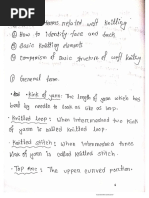 ② How to identify face and back
③ Basic Knitting elements
④ Comparison of Basic structure of weft knitting
① General term.
Kink of yarn: The length of yarn which has
bend by needle to look as like as loop.
Knitted loop: When intermeshed two kink
of yarn is called knitted loop.
Knitted stitch: When intermeshed three
kink of yarn is called knitted stitch.
Top arc: The upper curved portion.